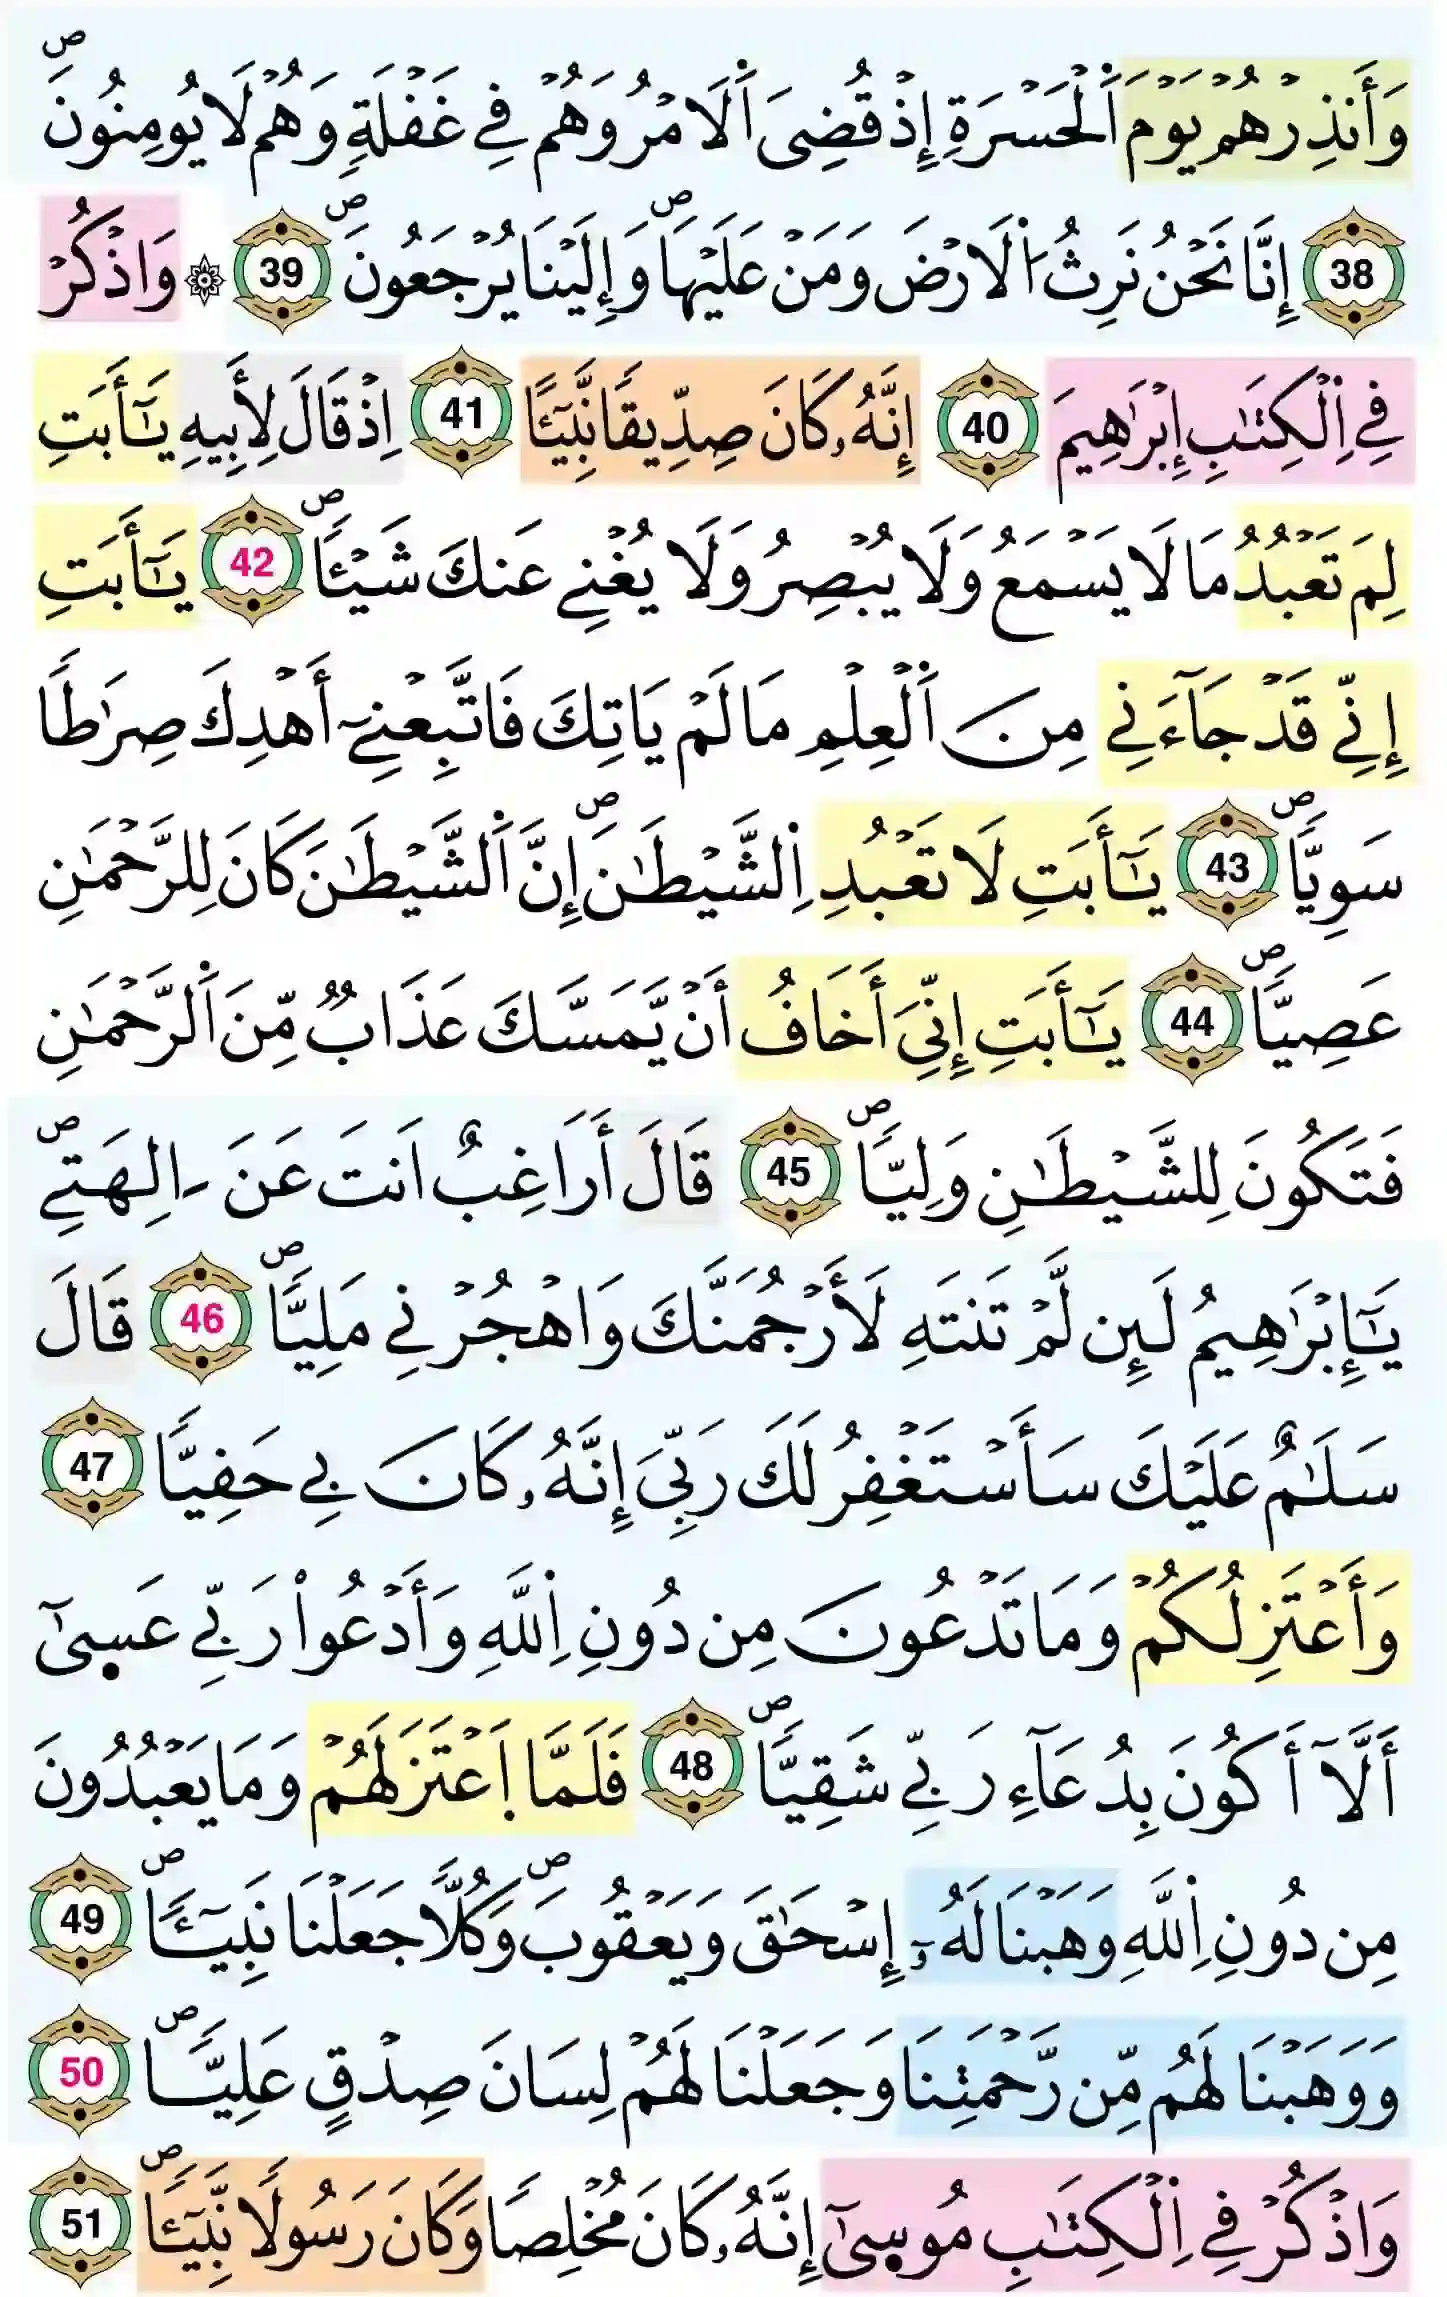 وَأَنذِرْهُمْ يَوْمَ اَ۬لْحَسْرَةِ إِذْ قُضِيَ اَ۬لَامْرُ وَهُمْ فِے غَفْلَةٖ وَهُمْ لَا يُومِنُونَۖ
38 إِنَّا نَحْنُ نَرِثُ اُ۬لَارْضَ وَمَنْ عَلَيْهَاۖ وَإِلَيْنَا يُرْجَعُونَۖ 39 ۞ وَاذْكُرْ
فِے اِ۬لْكِتَٰبِ إِبْرَٰهِيمَ 40 إِنَّهُۥ كَانَ صِدِّيقاٗ نَّبِيٓـٔاً 41 اِذْ قَالَ لِأَبِيهِ يَٰٓأَبَتِ
لِمَ تَعْبُدُ مَا لَا يَسْمَعُ وَلَا يُبْصِرُ وَلَا يُغْنِے عَنكَ شَيْـٔاٗۖ 42 يَٰٓأَبَتِ
إِنِّے قَدْ جَآءَنِے مِنَ اَ۬لْعِلْمِ مَا لَمْ يَاتِكَ فَاتَّبِعْنِےٓ أَهْدِكَ صِرَٰطاٗ
سَوِيّاٗۖ 43 يَٰٓأَبَتِ لَا تَعْبُدِ اِ۬لشَّيْطَٰنَۖ إِنَّ اَ۬لشَّيْطَٰنَ كَانَ لِلرَّحْمَٰنِ
عَصِيّاٗۖ 44 يَٰٓأَبَتِ إِنِّيَ أَخَافُ أَنْ يَّمَسَّكَ عَذَابٞ مِّنَ اَ۬لرَّحْمَٰنِ
فَتَكُونَ لِلشَّيْطَٰنِ وَلِيّاٗۖ 45 قَالَ أَرَاغِبٌ اَنتَ عَنَ ـ۪الِهَتِےۖ
يَٰٓإِبْرَٰهِيمُ لَئِن لَّمْ تَنتَهِ لَأَرْجُمَنَّكَ وَاهْجُرْنِے مَلِيّاٗۖ 46 قَالَ
سَلَٰمٌ عَلَيْكَ سَأَسْتَغْفِرُ لَكَ رَبِّيَ إِنَّهُۥ كَانَ بِے حَفِيّاٗ 47
وَأَعْتَزِلُكُمْ وَمَا تَدْعُونَ مِن دُونِ اِ۬للَّهِ وَأَدْعُواْ رَبِّے عَس۪ىٰٓ
أَلَّآ أَكُونَ بِدُعَآءِ رَبِّے شَقِيّاٗۖ 48 فَلَمَّا اَ۪عْتَزَلَهُمْ وَمَا يَعْبُدُونَ
مِن دُونِ اِ۬للَّهِ وَهَبْنَا لَهُۥٓ إِسْحَٰقَ وَيَعْقُوبَۖ وَكُلّاٗ جَعَلْنَا نَبِيٓـٔاٗۖ 49
وَوَهَبْنَا لَهُم مِّن رَّحْمَتِنَا وَجَعَلْنَا لَهُمْ لِسَانَ صِدْقٍ عَلِيّاٗۖ 50
وَاذْكُرْ فِے اِ۬لْكِتَٰبِ مُوس۪ىٰٓ إِنَّهُۥ كَانَ مُخْلِصاٗ وَكَانَ رَسُولاٗ نَّبِيٓـٔاٗۖ 51